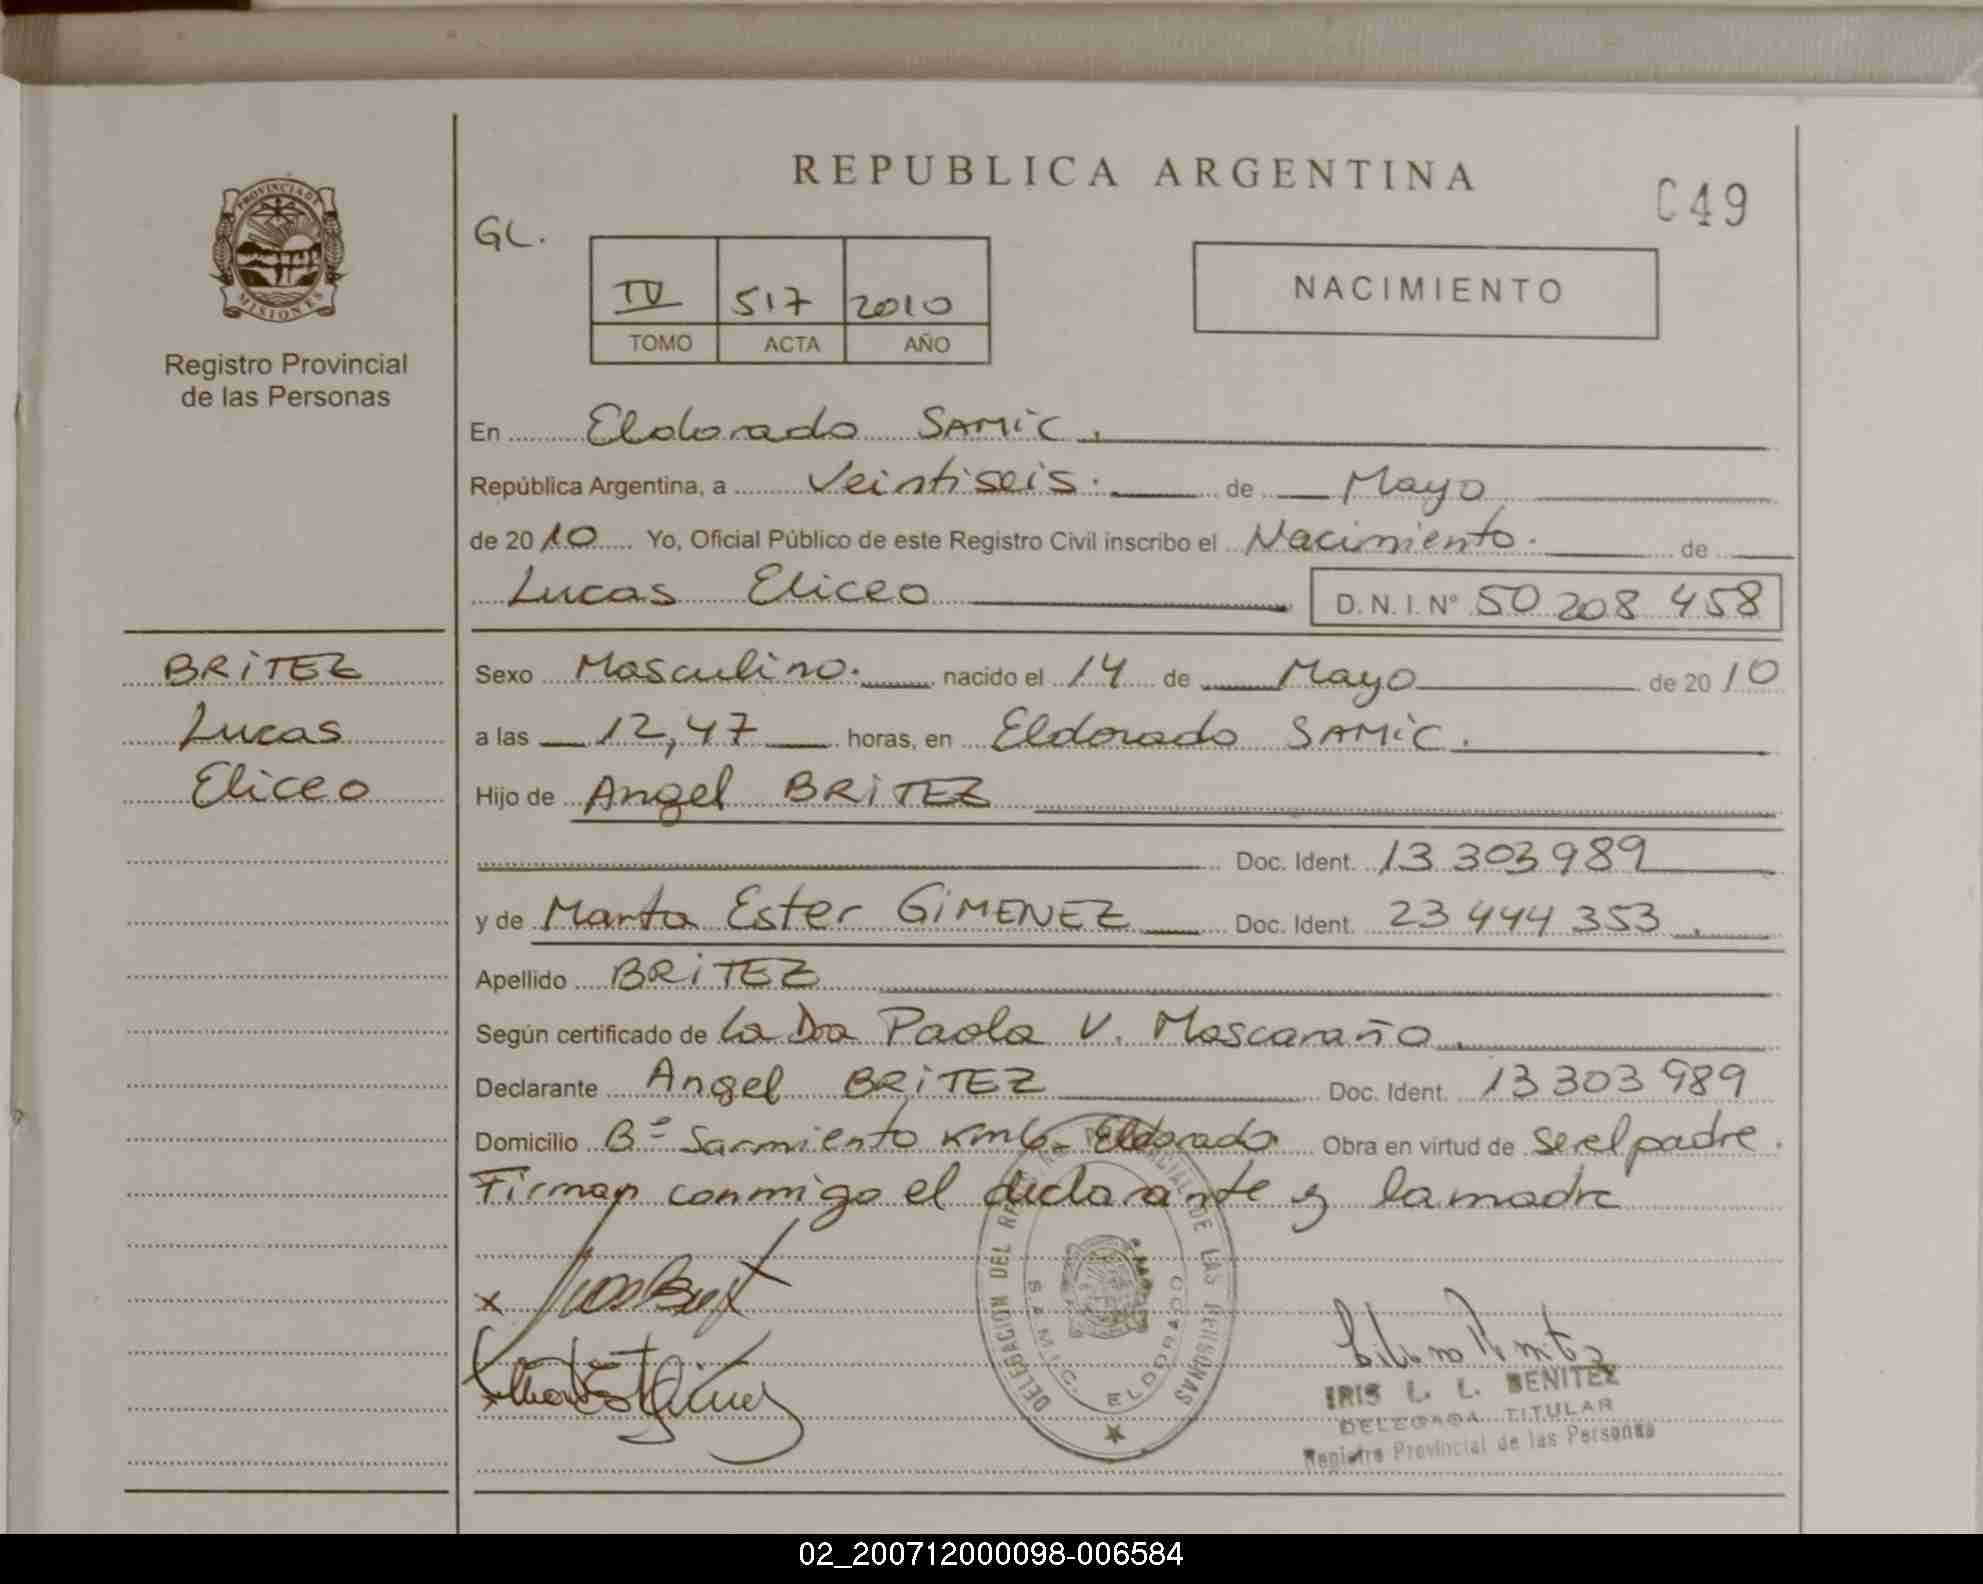 REPUBLICA ARGENTINA
C49
PROVINCIA DE
MISIONES
Registro Provincial
de las Personas
GL.
IV 517 2010
TOMO ACTA AÑO
NACIMIENTO
En Eldorado SAMiC.
República Argentina, a Veintiseis. de Mayo
de 2010 Yo, Oficial Público de este Registro Civil inscribo el Nacimiento. de
Lucas Eliceo D.N.I. Nº 50 208 458
BRiTEZ
Lucas
Eliceo
Sexo Masculino. nacido el 14 de Mayo de 2010
a las 12,47 horas, en Eldorado SAMiC.
Hijo de Angel BRiTEZ
Doc. Ident. 13 303 989
y de Marta Ester GiMENEZ Doc. Ident. 23 444 353.
Apellido BRiTEZ
Según certificado de la Dra Paola V. Mascaraño.
Declarante Angel BRiTEZ Doc. Ident. 13 303 989
Domicilio Bº Sarmiento Km6- Eldorado Obra en virtud de ser el padre.
Firman conmigo el declarante y la madre
x
x
DELEGACION DEL REGISTRO PROVINCIAL DE LAS PERSONAS
S.A.M.I.C. ELDORADO
IRIS L. L. BENITEZ
DELEGADA TITULAR
Registro Provincial de las Personas
02_200712000098-006584